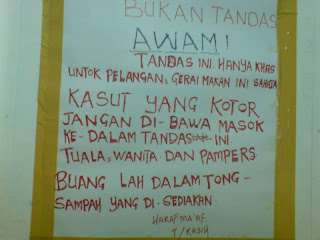 BUKAN TANDAS
AWAM!
TANDAS INI. HANYA KHAS
UNTOK PELANGAN. GERAI MAKAN INI SAHAJA
KASUT YANG KOTOR
JANGAN DI-BAWA MASOK
KE-DALAM TANDAS INI.
TUALA, WANITA DAN PAMPERS
BUANG LAH DALAM TONG -
SAMPAH YANG DI-SEDIAKAN.
HARAP MA'AF.
T/KASIH